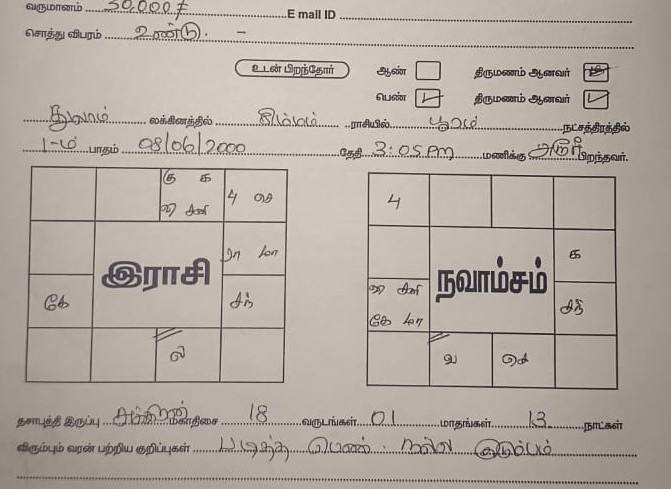 வருமானம் 30,000/- E mail ID
சொத்து விபரம் உண்டு. -
உடன் பிறந்தோர் ஆண் திருமணம் ஆனவர்
பெண் திருமணம் ஆனவர்
துலாம் லக்கினத்தில் சிம்மம் ராசியில் பூரம் நட்சத்திரத்தில்
1-ம் பாதம் 08/06/2000 தேதி 3:05 PM மணிக்கு அரூர் பிறந்தவர்.
கு க
சனி
பு செ
ரா மா
இராசி
கே
சந்
ல
பு
க
நவாம்சம்
சனி
கே மா
சந்
ல
செ
தசாபுத்தி இருப்பு சுக்கிரன் மகாதிசை 18 வருடங்கள் 01 மாதங்கள் 13 நாட்கள்
விரும்பும் வரன் பற்றிய குறிப்புகள் படித்த பெண். நல்ல குடும்பம்